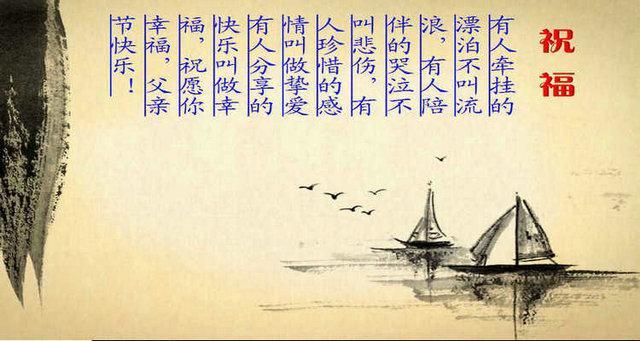 祝福
有人牵挂的
漂泊不叫流
浪，有人陪
伴的哭泣不
叫悲伤，有
人珍惜的感
情叫做挚爱
有人分享的
快乐叫做幸
福，祝愿你
幸福，父亲
节快乐！